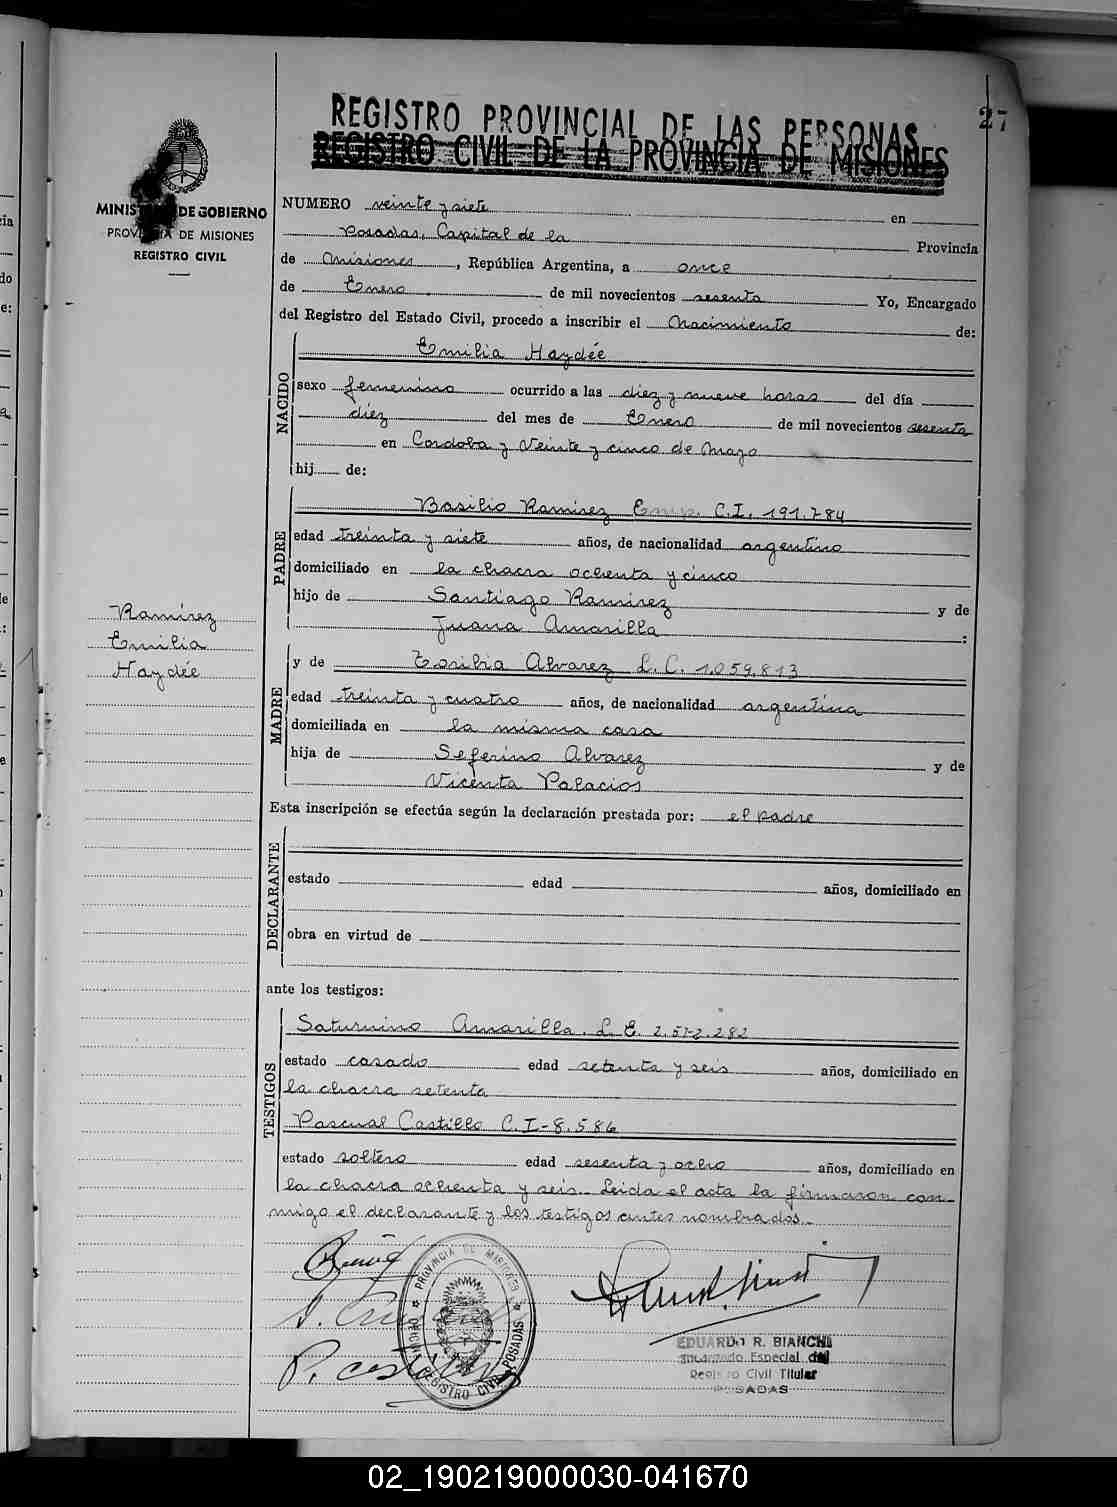 27
REGISTRO PROVINCIAL DE LAS PERSONAS
REGISTRO CIVIL DE LA PROVINCIA DE MISIONES
MINIS DE GOBIERNO
PROVINCIA DE MISIONES
REGISTRO CIVIL
NUMERO veinte y siete en
Posadas, Capital de la Provincia
de Misiones, República Argentina, a once
de Enero de mil novecientos sesenta Yo, Encargado
del Registro del Estado Civil, procedo a inscribir el Nacimiento de:
NACIDO
Emilia Haydée
sexo femenino ocurrido a las diez y nueve horas del día
diez del mes de Enero de mil novecientos sesenta
en Cordoba y Veinte y cinco de Mayo
hij de:
PADRE
Basilio Ramirez Emp. C.I. 191.784
edad treinta y siete años, de nacionalidad argentino
domiciliado en la chacra ochenta y cinco
hijo de Santiago Ramirez y de
Juana Amarilla :
Ramirez
Emilia
Haydée
MADRE
y de Toribia Alvarez L.C. 1.059.813
edad treinta y cuatro años, de nacionalidad argentina
domiciliada en la misma casa
hija de Seferino Alvarez y de
Vicenta Palacios
Esta inscripción se efectúa según la declaración prestada por: el padre
DECLARANTE
estado edad años, domiciliado en
obra en virtud de
ante los testigos:
TESTIGOS
Saturnino Amarilla. L.E. 2.572.282
estado casado edad setenta y seis años, domiciliado en
la chacra setenta
Pascual Castillo C.I-8.586
estado soltero edad sesenta y ocho años, domiciliado en
la chacra ochenta y seis. Leida el acta la firmaron con-
migo el declarante y los testigos antes nombrados.
PROVINCIA DE MISIONES
REGISTRO CIVIL POSADAS
EDUARDO R. BIANCHI
Encargado Especial del
Registro Civil Titular
POSADAS
02_190219000030-041670